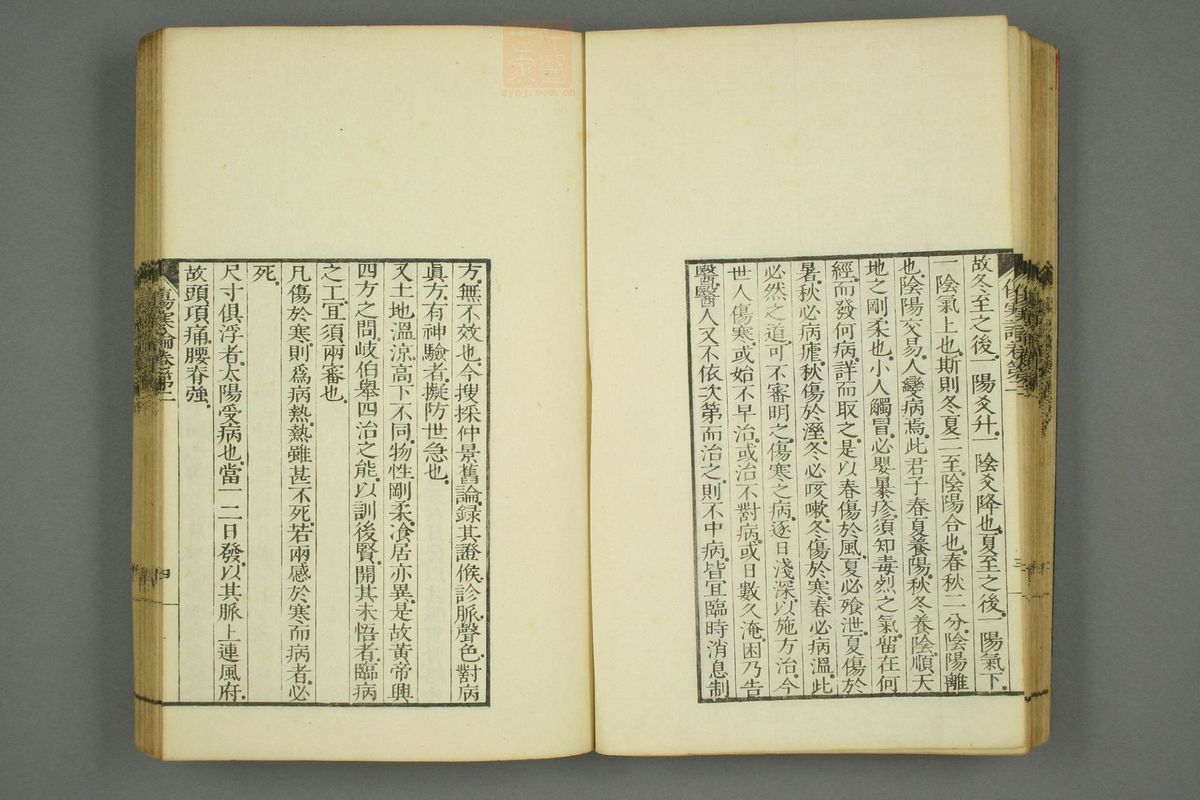 故冬至之後一陽爻升一陰爻降也夏至之後一陽氣下
一陰氣上也斯則冬夏二至陰陽合也春秋二分陰陽離
也陰陽交易人變病焉此君子春夏養陽秋冬養陰順天
地之剛柔也小人觸冒必嬰暴疹須知毒烈之氣留在何
經而發何病詳而取之是以春傷於風夏必飧泄夏傷於
暑秋必病瘧秋傷於溼冬必咳嗽冬傷於寒春必病溫此
必然之道可不審明之傷寒之病逐日淺深以施方治今
世人傷寒或始不早治或治不對病或日數久淹困乃告
醫醫人又不依次第而治之則不中病皆宜臨時消息制
方無不效也今搜採仲景舊論録其證候診脈聲色對病
眞方有神驗者擬防世急也
又土地溫涼高下不同物性剛柔飡居亦異是故黃帝興
四方之問岐伯舉四治之能以訓後賢開其未悟者臨病
之工宜須兩審也
凡傷於寒則爲病熱熱雖甚不死若兩感於寒而病者必
死
尺寸俱浮者太陽受病也當一二日發以其脈上連風府
故頭項痛腰脊強
傷寒論卷第二
四
zysj.com.cn